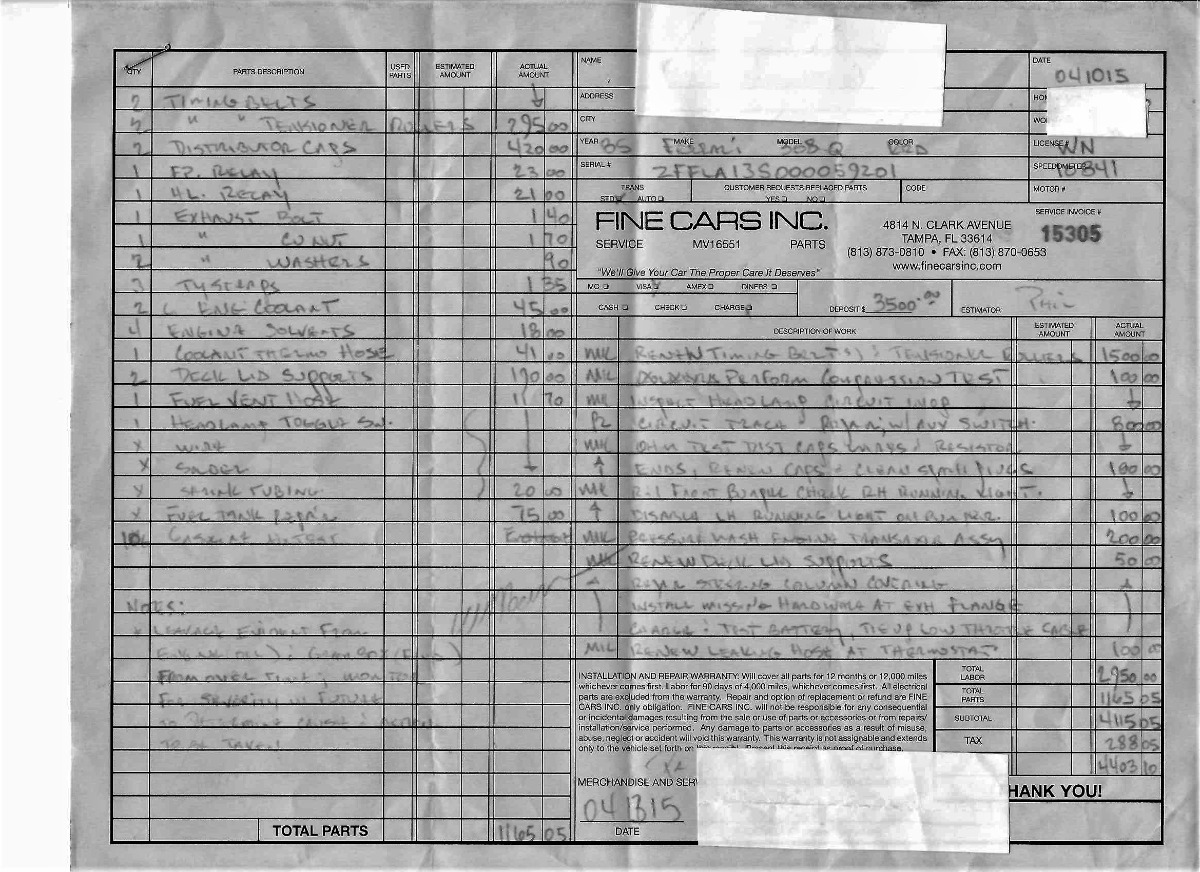 QTY PARTS DESCRIPTION USED PARTS ESTIMATED AMOUNT ACTUAL AMOUNT
2 TIMING BELTS
2 " " TENSIONER ROLLERS 295 00
2 DISTRIBUTOR CAPS 420 00
1 F.P. RELAY 23 00
1 H.L. RELAY 21 00
1 EXHAUST BOLT 1 40
1 " CU NUT 1 70
2 " WASHERS 90
3 TYSTRAPS 1 35
2 ENG COOLANT 45 00
4 ENGINE SOLVENTS 18 00
1 COOLANT THERMO HOSE 41 00
2 DECK LID SUPPORTS 170 00
1 FUEL VENT HOSE 11 70
1 HEADLAMP TOGGLE SW.
X WIRE
X SOLDER
X SHRINK TUBING 20 00
X FUEL TANK REPAIR 75 00
NOTES:
LEAKAGE EVIDENT FROM
ENGINE (OIL) : GEARBOX
FROM OVER TIME; MONITOR
FOR SEVERITY IN FUTURE
TO BE TAKEN
TOTAL PARTS 1165 05
NAME
ADDRESS
CITY
DATE 041015
YEAR 85 MAKE Ferrari MODEL 308 Q COLOR RED
LICENSE # WN
SERIAL # ZFFLA13S000059201
SPEEDOMETER 10841
TRANS STD AUTO
CUSTOMER REQUESTS REPLACED PARTS YES NO
CODE
MOTOR #
FINE CARS INC.
SERVICE MV16551 PARTS
"We'll Give Your Car The Proper Care It Deserves"
4814 N. CLARK AVENUE
TAMPA, FL 33614
(813) 873-0810 • FAX: (813) 870-0653
www.finecarsinc.com
SERVICE INVOICE #
15305
MC VISA AMEX DINERS
CASH CHECK CHARGE
DEPOSIT $ 3500.00
ESTIMATOR
DESCRIPTION OF WORK ESTIMATED AMOUNT ACTUAL AMOUNT
RENEW TIMING BELT(S) : TENSIONER ROLLERS 1500 00
PERFORM COMPRESSION TEST 100 00
INSPECT HEADLAMP CIRCUIT INOP
CIRCUIT TRACE REPAIR W/AUX SWITCH. 800 00
OHM TEST DIST CAPS WIRES : RESISTOR
ENDS, RENEW CAPS : CLEAN SPARK PLUGS 100 00
R:I FRONT BUMPER CHECK RH RUNNING LIGHT.
DISABLE LH RUNNING LIGHT ON BUMPER. 100 00
PRESSURE WASH ENGINE TRANSAXLE ASSY 200 00
RENEW DECK LID SUPPORTS 50 00
REPAIR STEERING COLUMN COVERING
INSTALL MISSING HARDWARE AT EXH FLANGE
CHARGE : TEST BATTERY, TIE UP LOW THROTTLE CABLE
RENEW LEAKING HOSE AT THERMOSTAT 100 00
INSTALLATION AND REPAIR WARRANTY: Will cover all parts for 12 months or 12,000 miles
whichever comes first. Labor for 90 days of 4,000 miles, whichever comes first. All electrical
parts are excluded from the warranty. Repair and option of replacement or refund are FINE
CARS INC. only obligation. FINE CARS INC. will not be responsible for any consequential
or incidental damages resulting from the sale or use of parts or accessories or from repairs/
installation/service performed. Any damage to parts or accessories as a result of misuse,
abuse, neglect or accident will void this warranty. This warranty is not assignable and extends
only to the vehicle set forth on
TOTAL LABOR 2950 00
TOTAL PARTS 1165 05
SUBTOTAL 4115 05
TAX 288 05
4403 10
MERCHANDISE AND SERV
041315
DATE
HANK YOU!